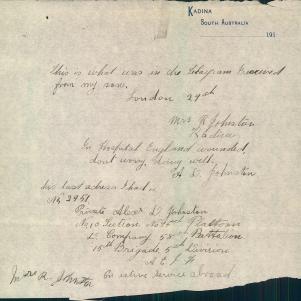 KADINA
SOUTH AUSTRALIA
191
This is what was in the Telegram Received
from my son.
London 29th
Mrs R Johnston
Kadina
In Hospital England wounded,
dont worry doing well,
A D. Johnston
his last adress I had is
No 2951
Private Alex D. Johnston
No 10 Section No Platoon
Company 5 Battalion
15th Brigade 5th Division
A I F
On active service abroad
Mrs R. Johnston